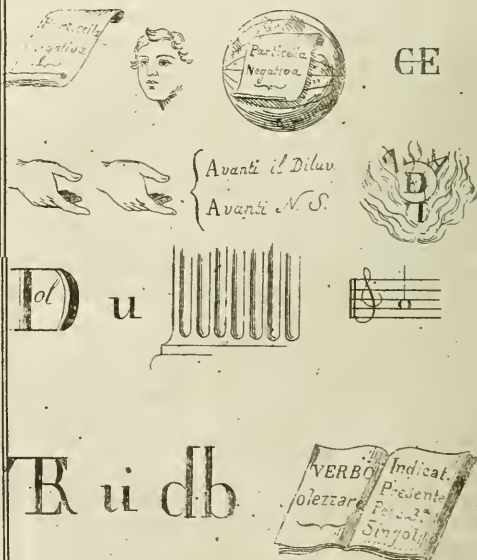 Particella
Negativa
Particella
Negativa
CE
Avanti il Diluv.
Avanti N. S.
D
ol
u
u
db
VERBO
olezzare
Indicat.
Presente
Singol.